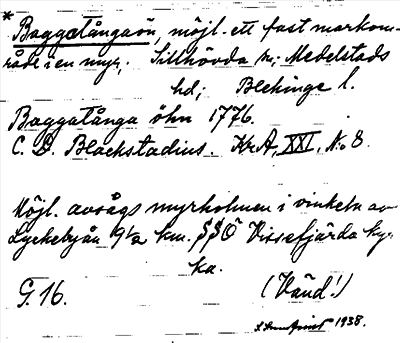 * Baggatångaön, möjl. ett fast markom-
råde i en myr, Sillhövda sn; Medelstads
hd; Blekinge l.
Baggatånga öhn 1776.
C. D. Blackstadius. KrA, XXI, No 8.
Möjl. avsågs myrholmen i vinkeln av
Lyckebyån 9 1/2 km. SSÖ Vissefjärda kyr-
ka.
G. 16. (Vänd!)
1938.